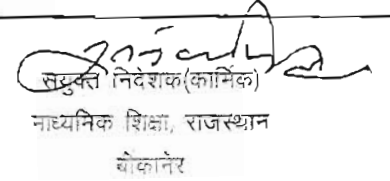 सयुक्त निदेशक(कार्मिक)
माध्यमिक शिक्षा, राजस्थान
बीकानेर